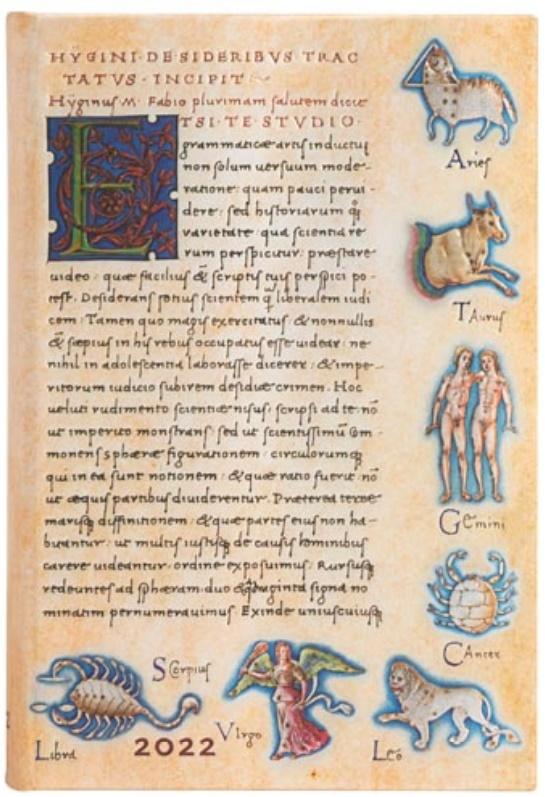 HYGINI·DE·SIDERIBVS TRAC
TATVS · INCIPIT
Hÿginus M. Fabio plurimam salutem dicit
ETSI·TE·STVDIO·
grammaticæ artis inductuſ
non solum versuum mode-
ratione: quam pauci pervi-
dere: sed historiarum q̃
varietate qua scientia re-
rum perspicitur: præstare
uideo: quæ facilius & scriptis tuis perspici po-
test. Desiderans potius scientem q̃ liberalem iudi
cem: Tamen quo magis exercitatus: & nonnullis
& sæpius in his rebus occupatus esse uidear: ne-
nihil in adolescentia laborasse dicerer: & impe-
ritorum iudicio subirem desidiæ crimen. Hoc
ueluti rudimento scientiæ nisus: scripsi ad te: nō
ut imperito monstrans sed ut scientissimū Com-
monens sphæræ figurationem: circulorumq
qui in ea sunt notionem: & quæ ratio fuerit: nō
ut æquis partibus diuiderentur. Præterea terræ
marisq diffinitionem: & quæ partes eius non ha-
bitantur: ut multis iustisq de causis hominibus
carere uideantur: ordine exposuimus: Rursusq
redeuntes ad sphæram: duo & quadraginta signa no
minatim pernumerauimus. Exinde uniuscuiusq
Aries
TAurus
GEmini
CAncer
LEo
VIrgo
SCorpius
Libra
2022